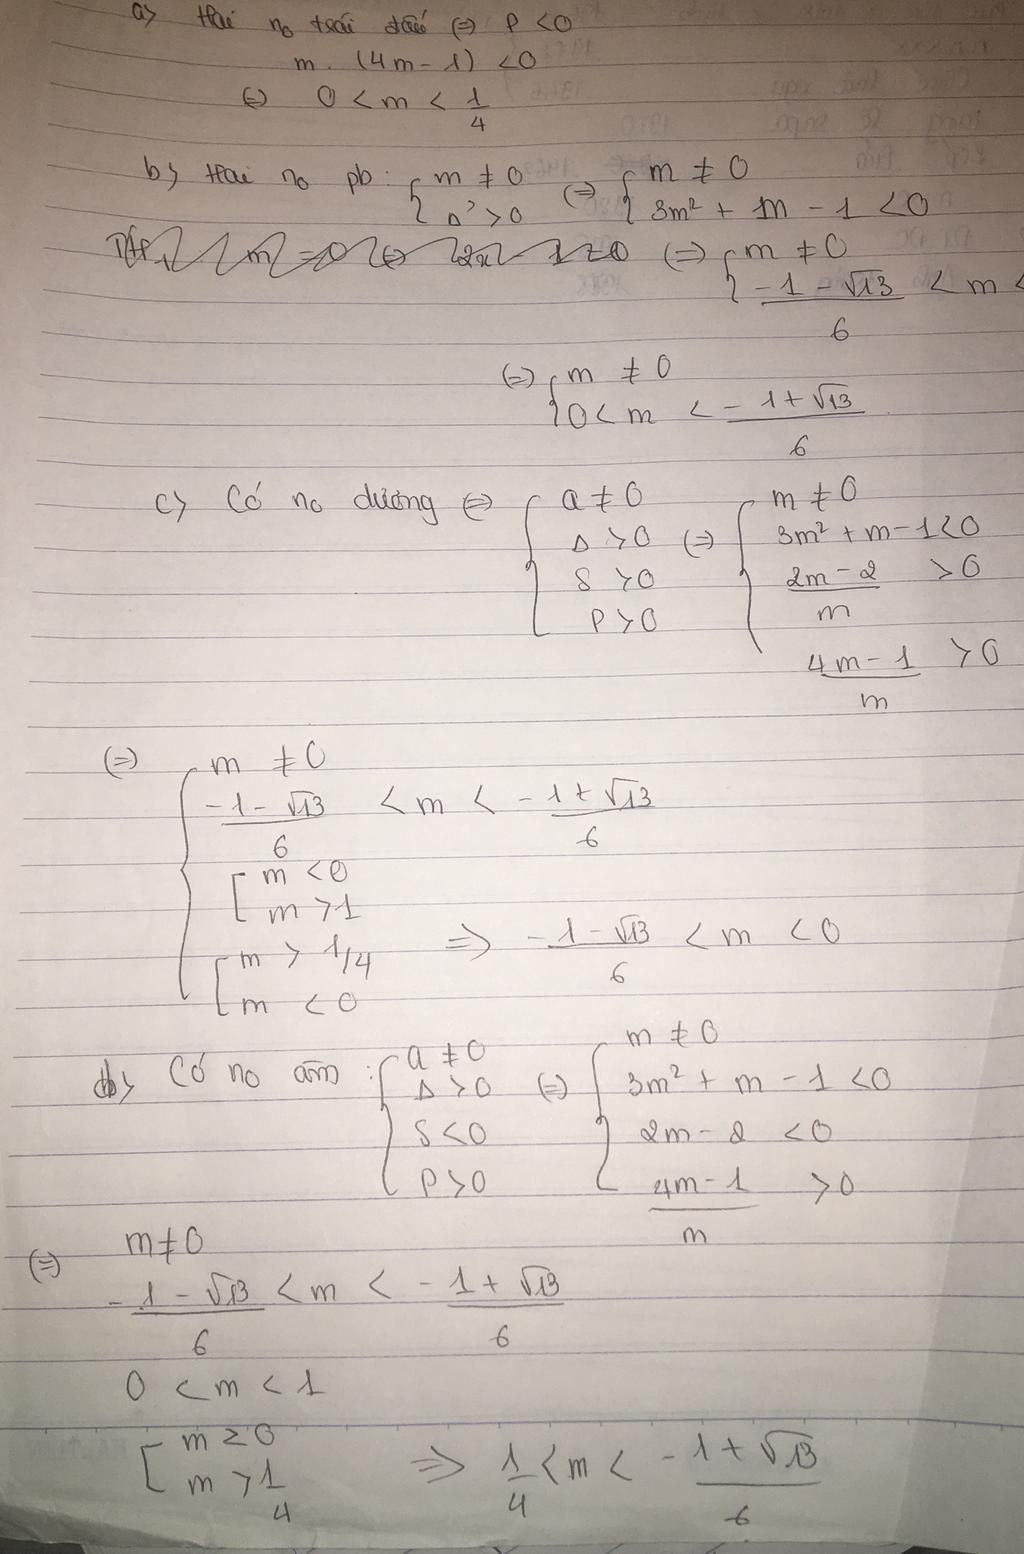 a) Hai no trái dấu (=) P < 0
m . (4m - 1) < 0
(=) 0 < m < 1/4
b) Hai no pb : { m ≠ 0 ; Δ' > 0 (=) { m ≠ 0 ; 3m² + m - 1 < 0
(=) { m ≠ 0 ; (-1 - √13)/6 < m <
(=) { m ≠ 0 ; 0 < m < (-1 + √13)/6
c) Có no dương (=) { a ≠ 0 ; Δ > 0 ; S > 0 ; P > 0 (=) { m ≠ 0 ; 3m² + m - 1 < 0 ; (2m - 2)/m > 0 ; (4m - 1)/m > 0
(=) { m ≠ 0
(-1 - √13)/6 < m < (-1 + √13)/6
[ m < 0
m > 1
[ m > 1/4 => (-1 - √13)/6 < m < 0
m < 0
d) Có no âm : { a ≠ 0 ; Δ > 0 ; S < 0 ; P > 0 (=) { m ≠ 0 ; 3m² + m - 1 < 0 ; 2m - 2 < 0 ; (4m - 1)/m > 0
(=) m ≠ 0
(-1 - √13)/6 < m < (-1 + √13)/6
0 < m < 1
[ m < 0
m > 1/4 => 1/4 < m < (-1 + √13)/6